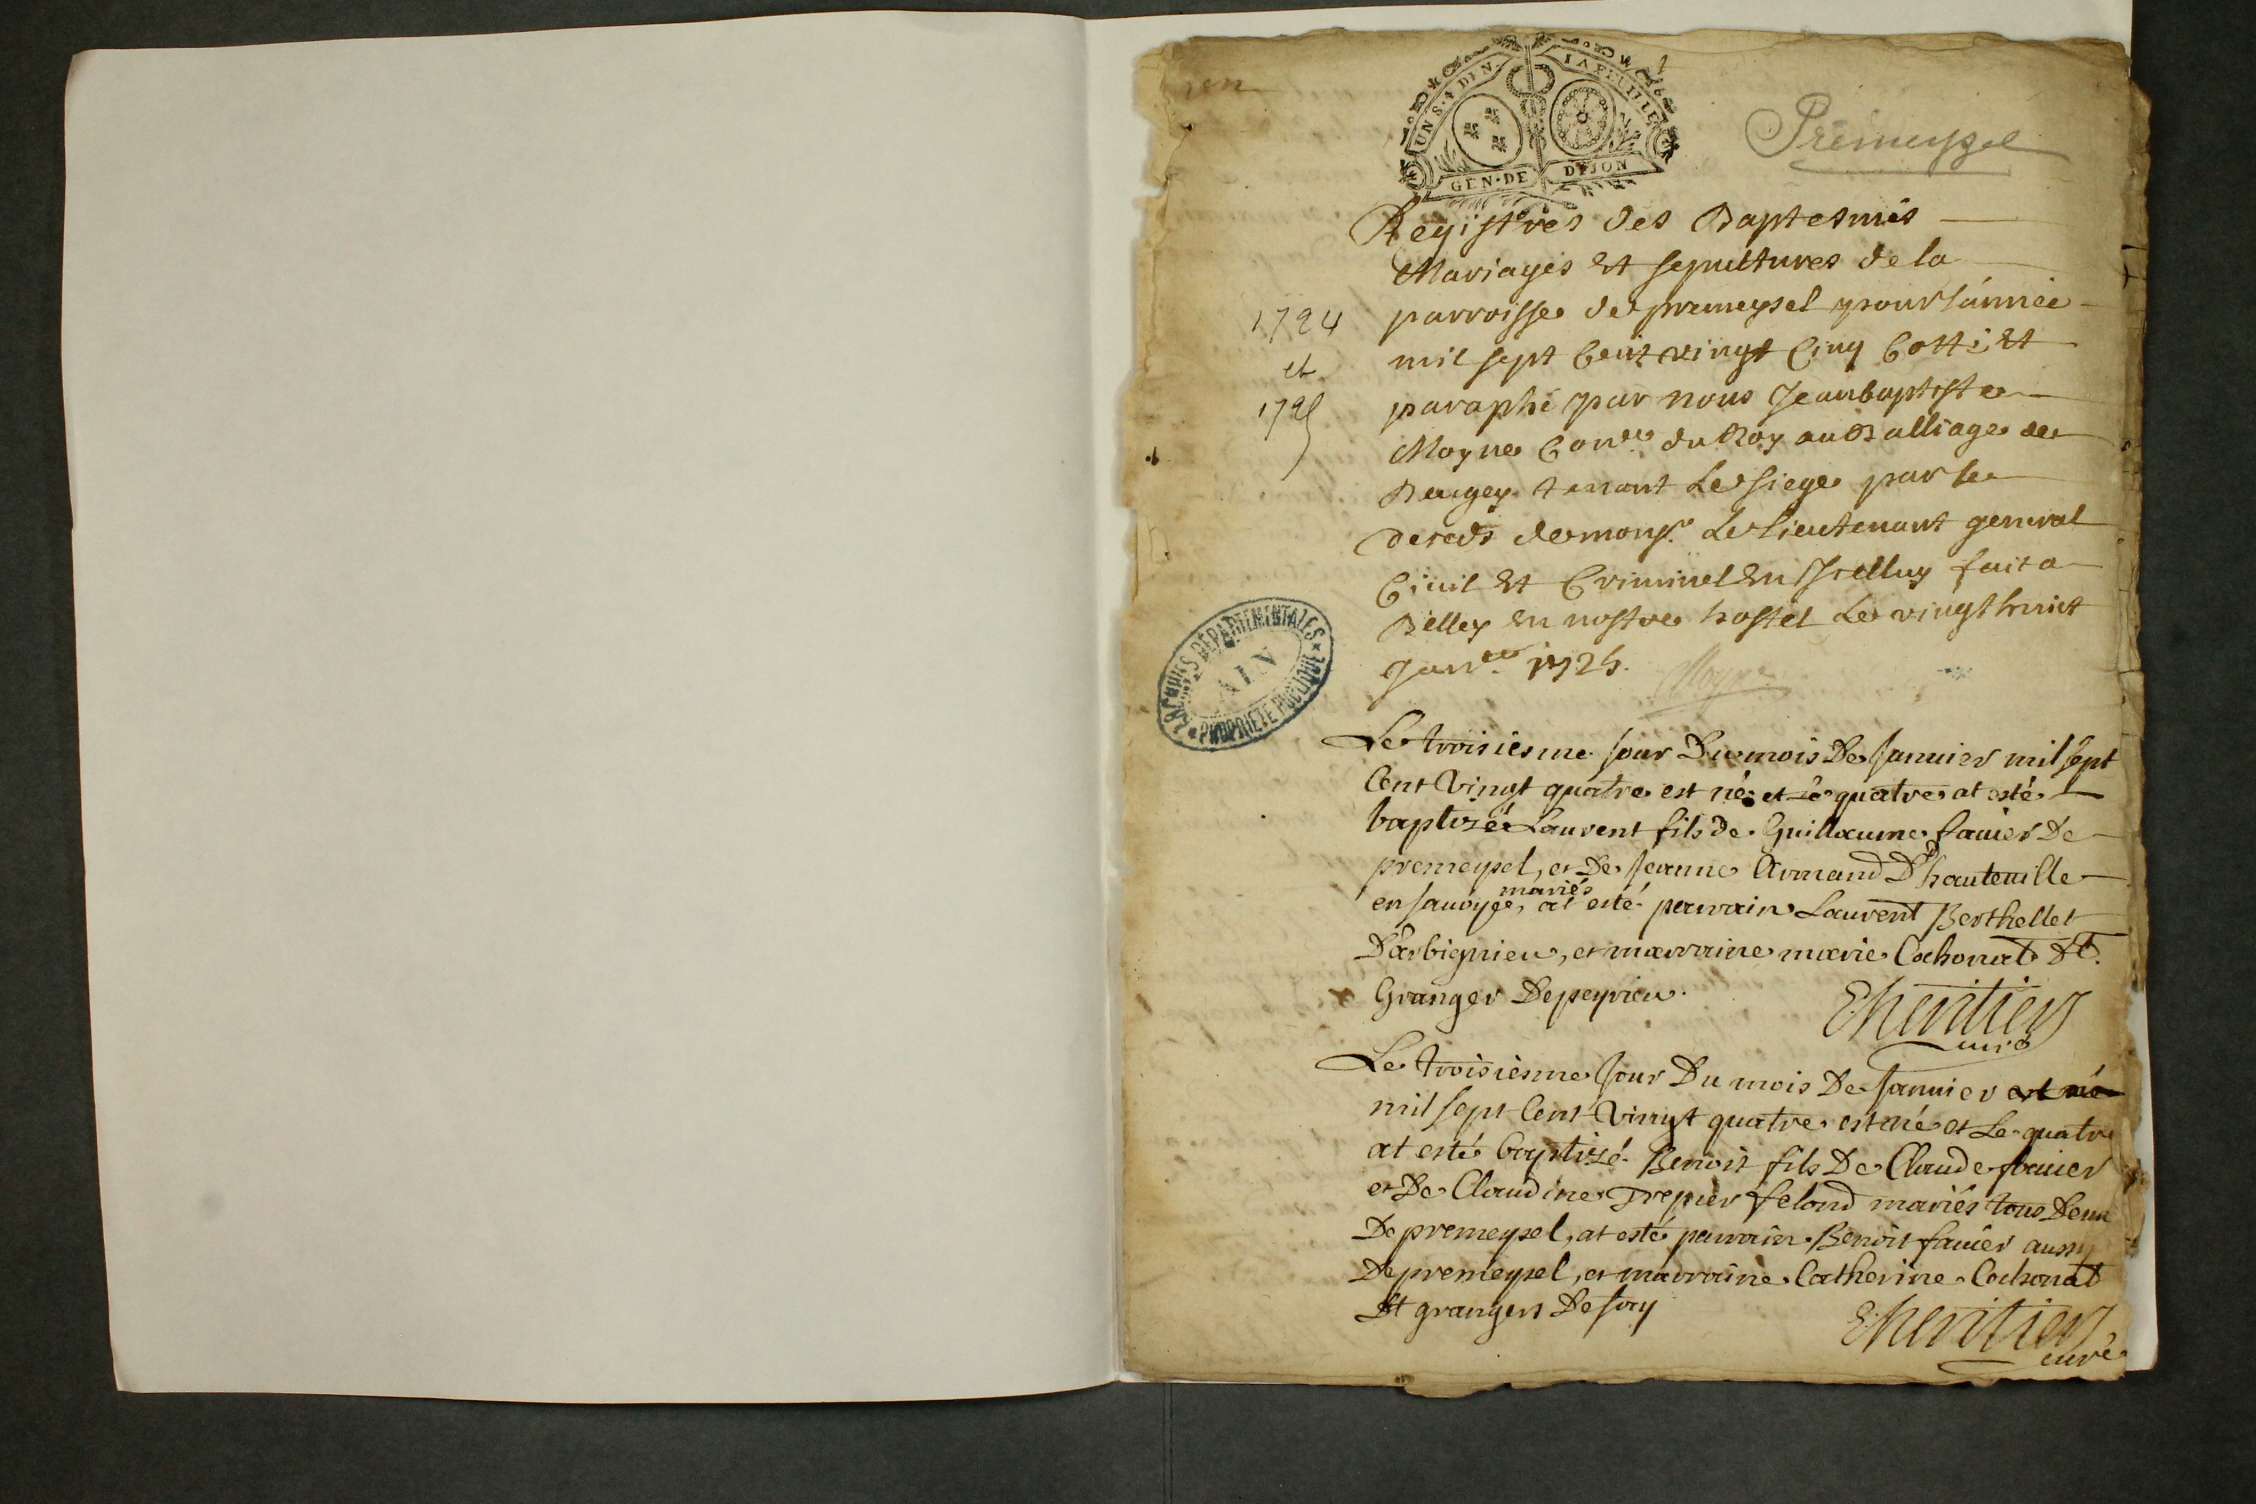 UN S. 4 DEN. LA FEUILLE
GEN. DE DIJON
Prémeyzel
Registres des Baptesmes
Mariages et sepultures de la
parroisse de premeysel pour lánnée
1724
et
1725
mil sept Cent vingt Cinq Cotté et
paraphé par nous Jeanbaptiste
Moyne Coner du Roy au Balliage de
Beugey tenant Le siege par le
deceds de monsr Le lieutenant general
Ciuil et Criminel en Icelluy fait a
Belley en nostre hostel Le vingthuict
Janer 1725.
Moyne
ARCHIVES DÉPARTEMENTALES
AIN
PROPRIÉTÉ PUBLIQUE
Le troisiesme jour Du mois De Januier mil sept
Cent Vingt quatre est né et le quatre at esté
baptizé Laurent fils de Guillaume fauier De
premeysel, et De Jeanne Armand D'hauteuille
en sauoye, mariés at esté parrain Laurent Berthellet
D'arbignieu, et marraine marie Cochonat dt
Granger De peyrieu.
Lheritier
curé
Le troisiesme Jour Du mois De Januier est né
mil sept Cent Vingt quatre est né et Le quatre
at esté baptizé Benoit fils De Claude fauier
et De Claudine Trepier felond mariés tous Deux
De premeysel, at esté parrain Benoit fauier aussy
De premeysel, et marraine Catherine Cochonat
dt grangers De foy
Lheritier
curé